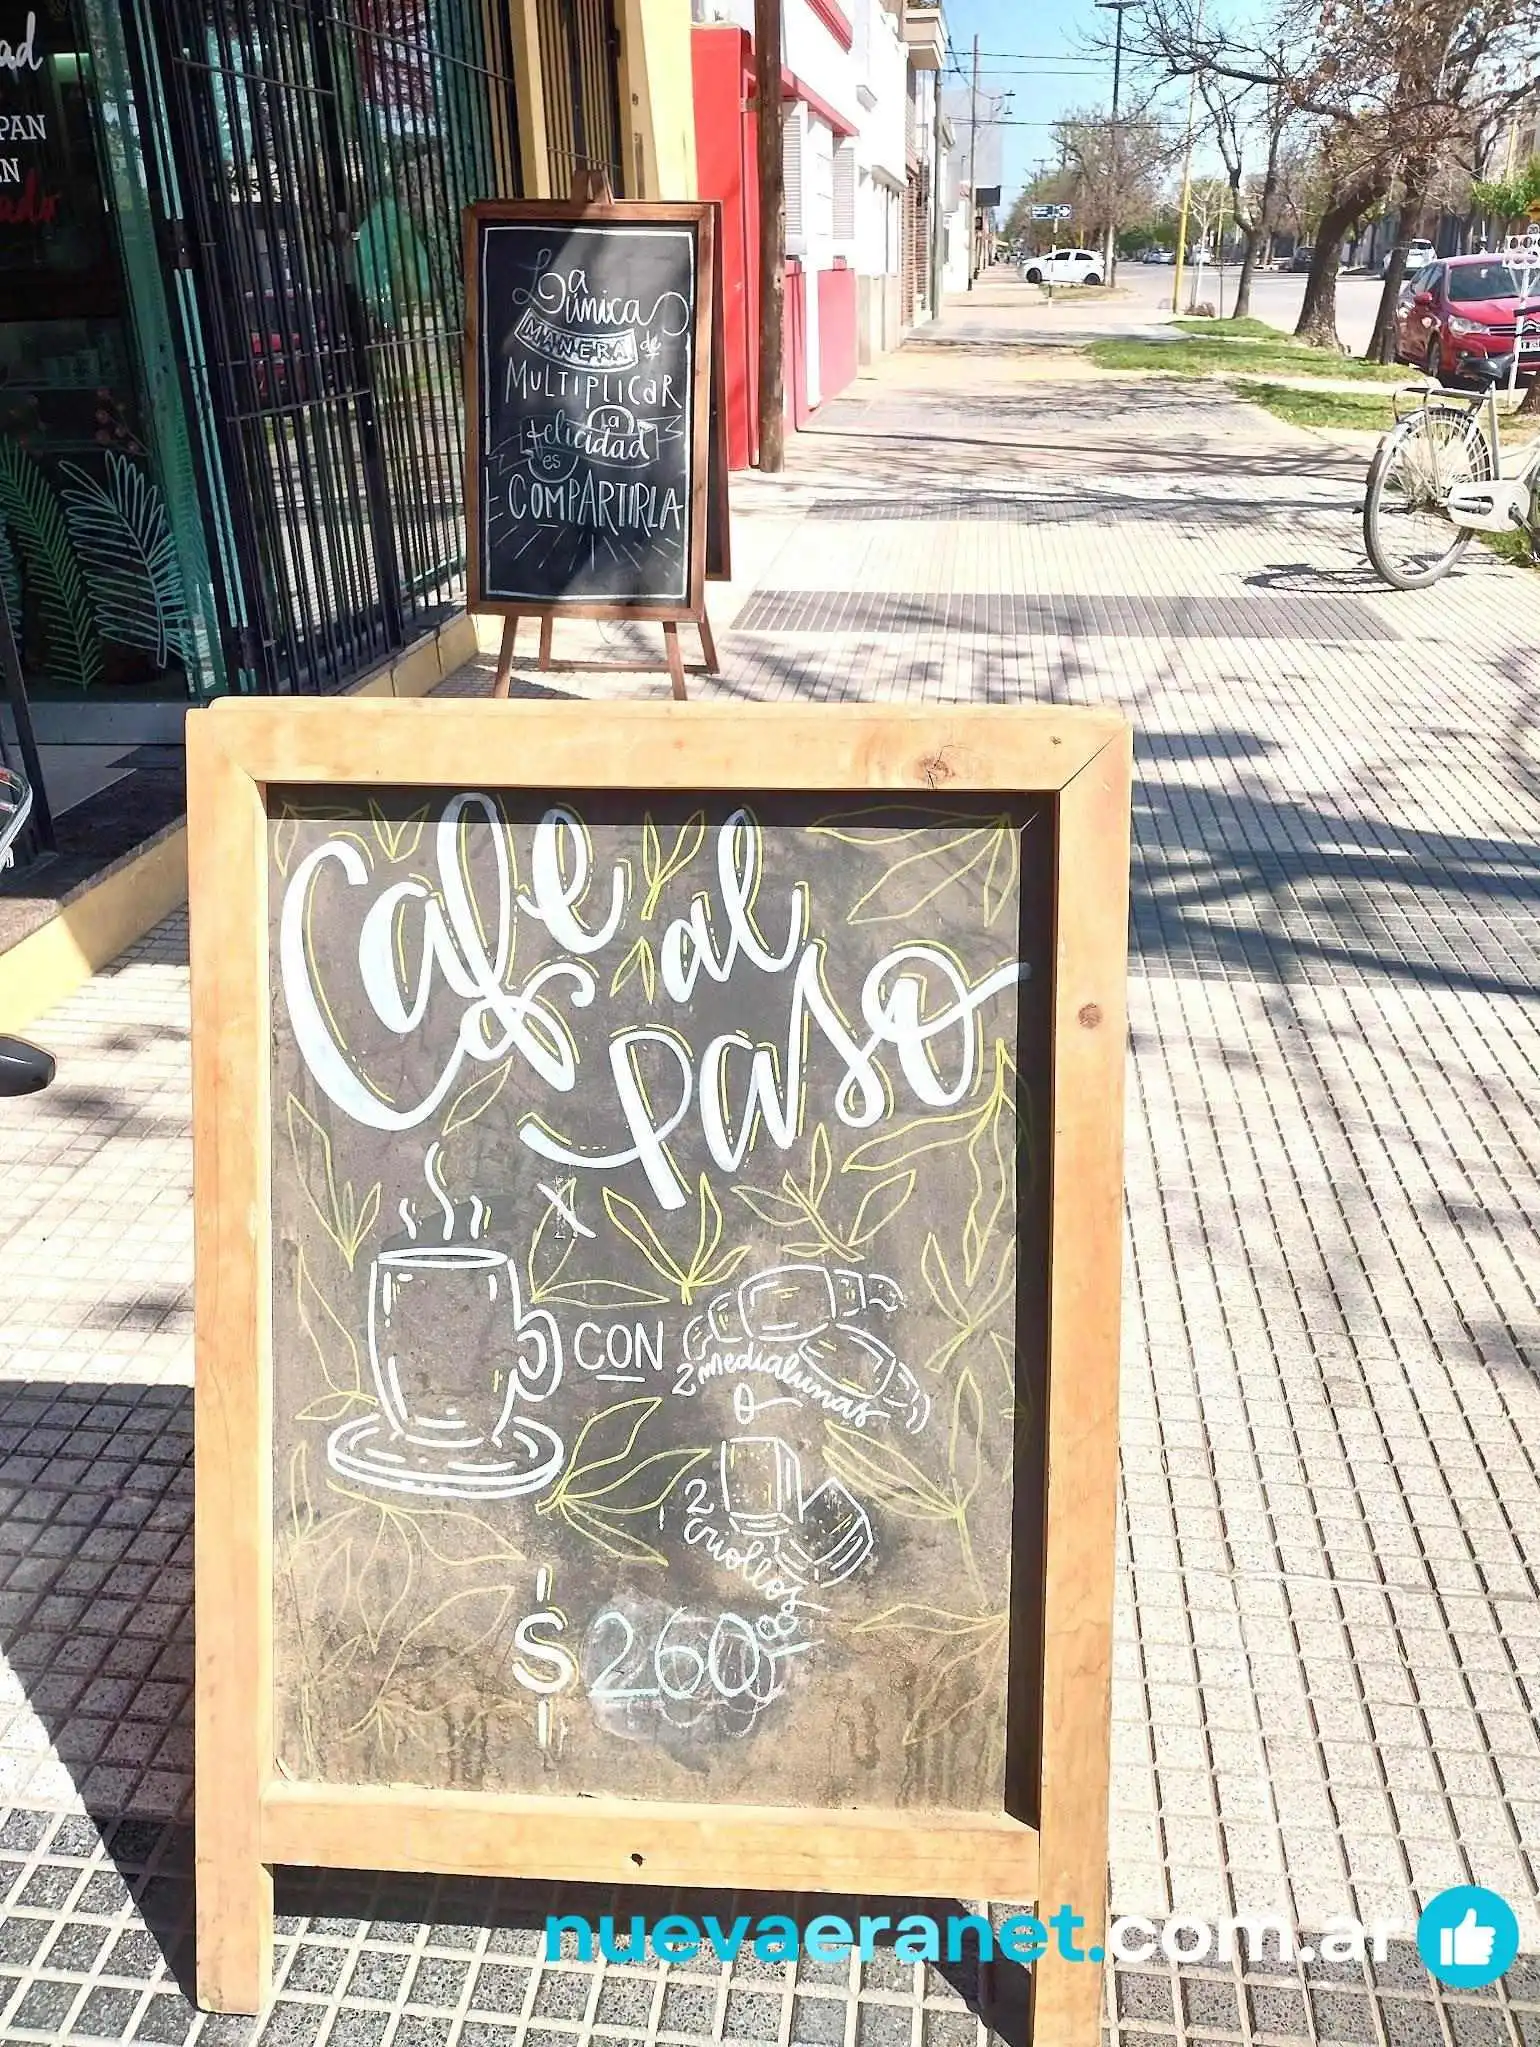 ad
PAN
EN
La
única
MANERA de
MULTIPLICAR
la
felicidad
es
COMPARTIRLA
Cafe al
paso
X
CON
2 medialunas
O
2
criollos
$ 260,00
nuevaeranet.com.ar